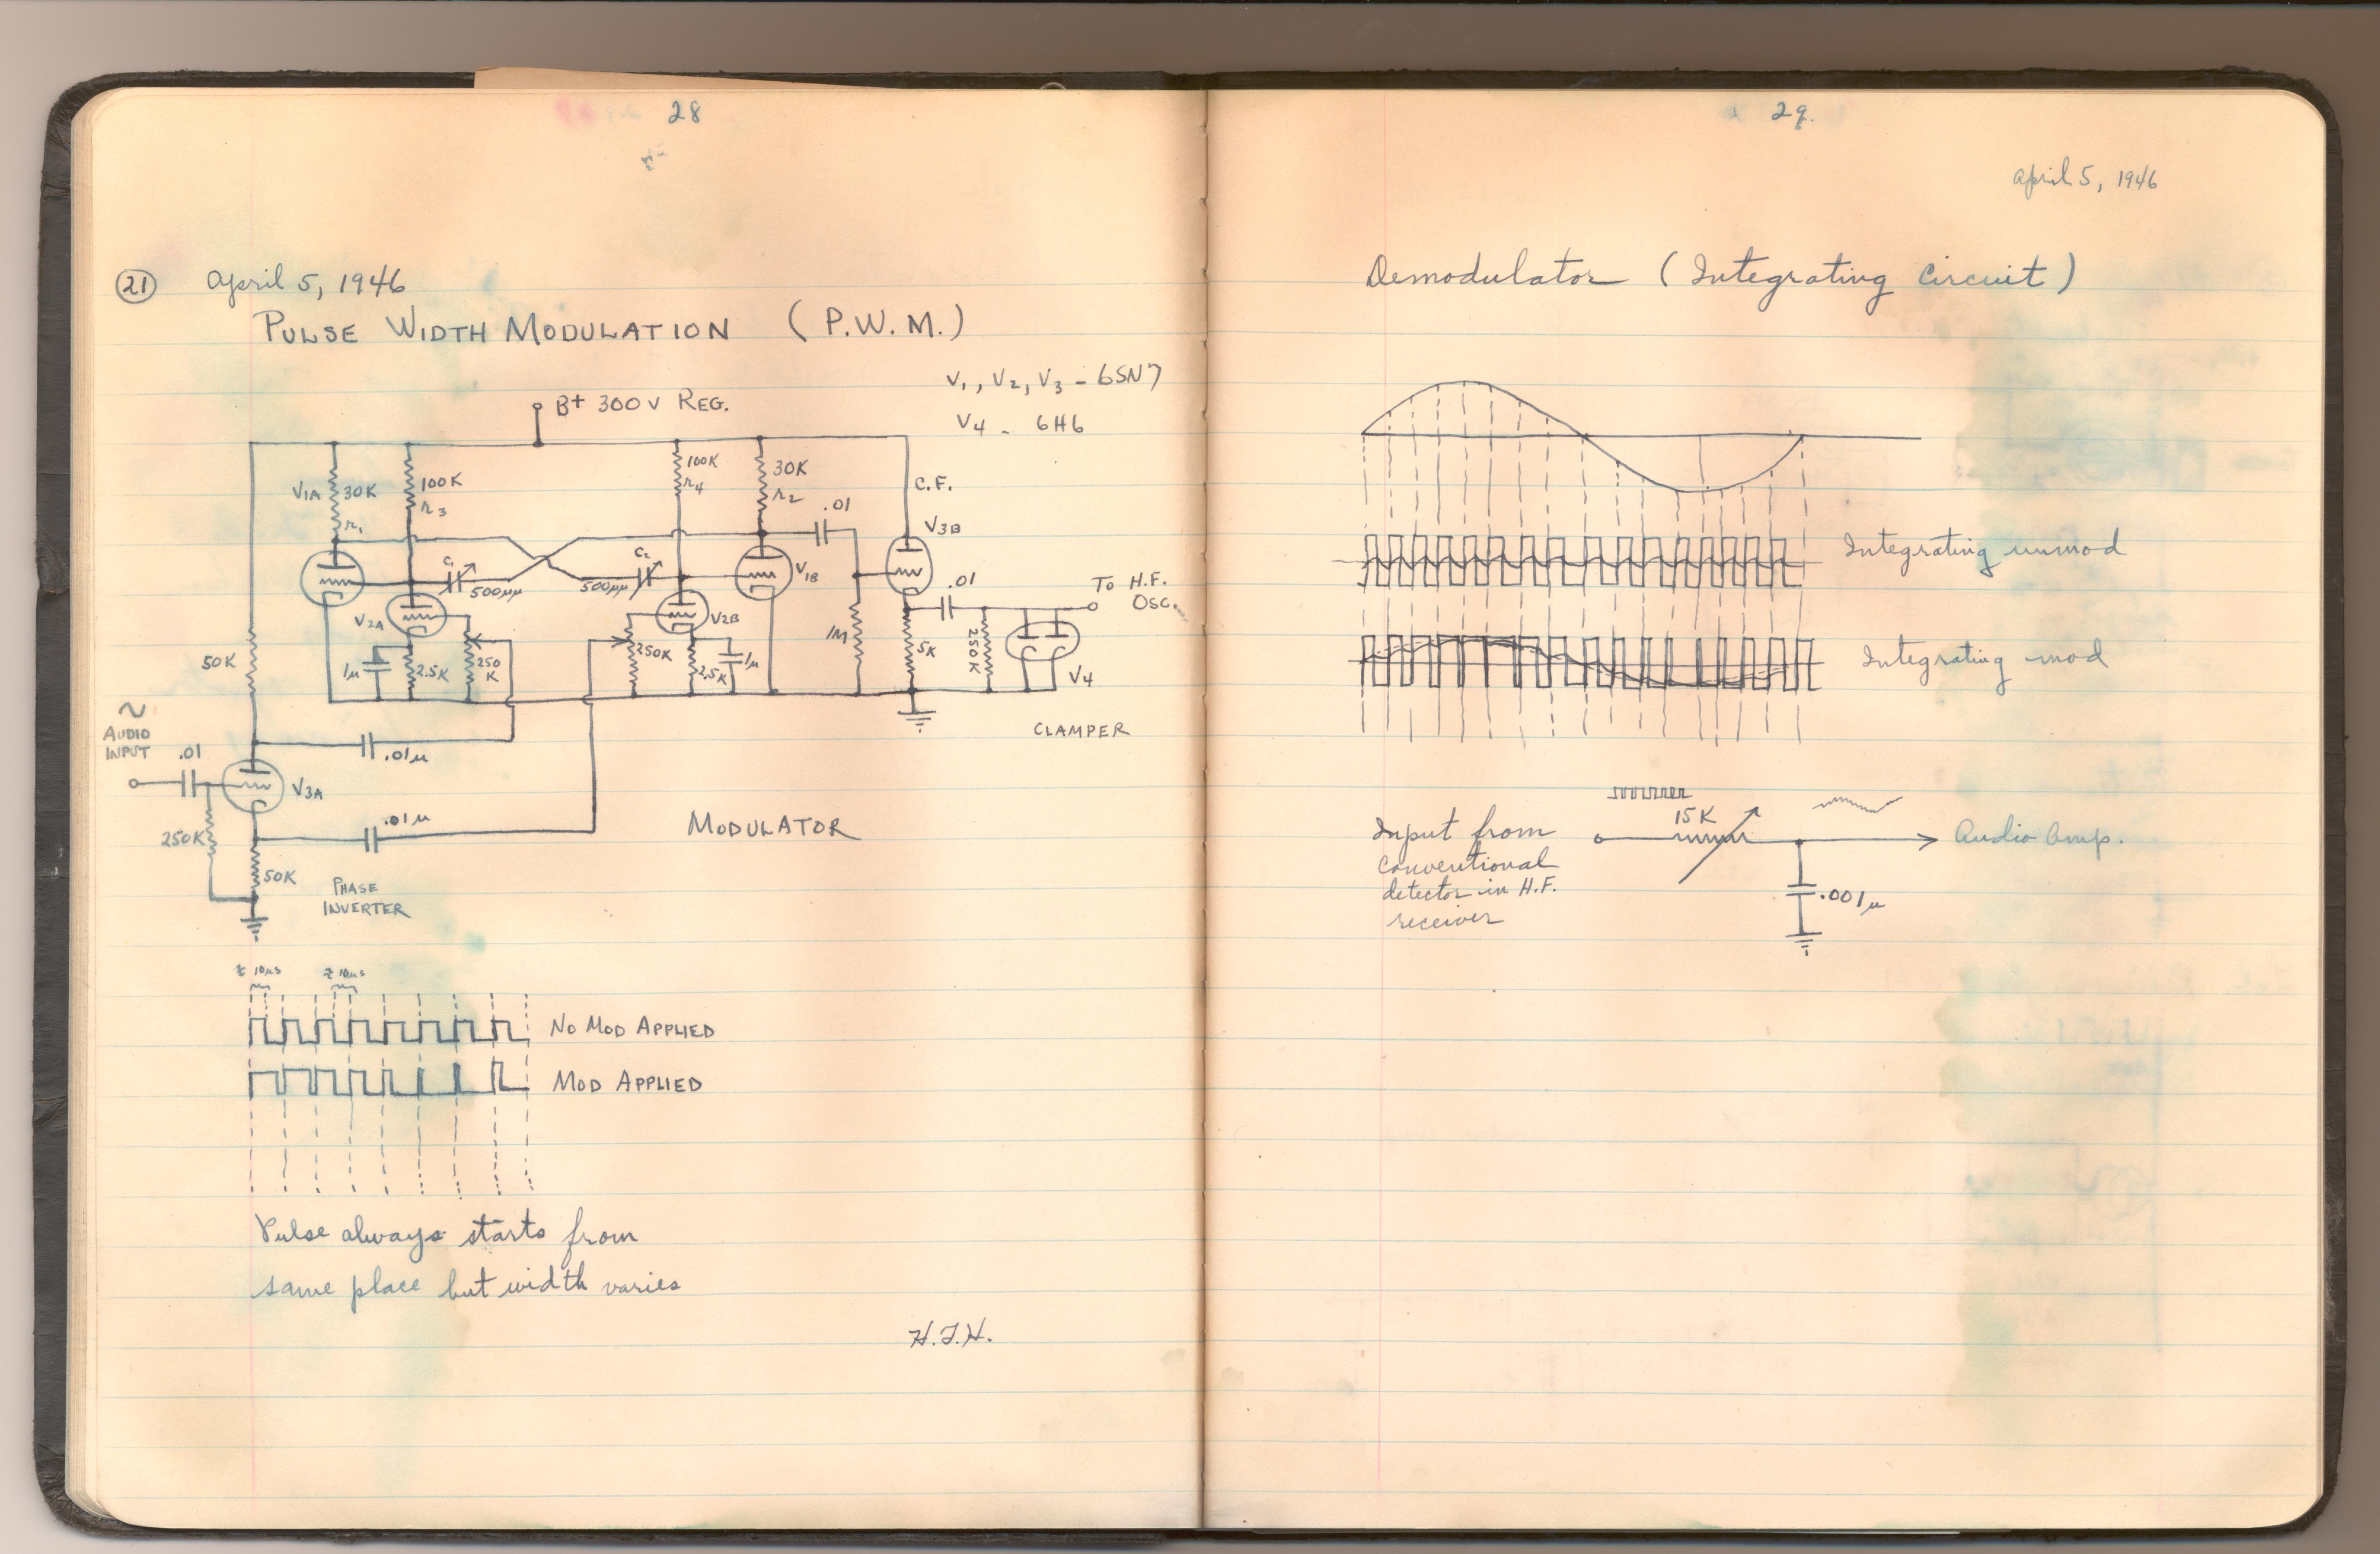 28
21 April 5, 1946
PULSE WIDTH MODULATION (P.W.M.)
V1, V2, V3 - 6SN7
V4 - 6H6
B+ 300V REG.
V1A 30K r1
100K r3
100K r4
30K r2
.01
C.F.
V3B
C1 500μμ
C2 500μμ
V1B
V2A
V2B
.01
TO H.F. OSC.
1μ
2.5K
250 K
250K
2.5K
1μ
1M
5K
250K
V4
50K
CLAMPER
AUDIO INPUT
.01
.01μ
V3A
250K
.01μ
MODULATOR
50K
PHASE INVERTER
10μs
10μs
NO MOD APPLIED
MOD APPLIED
Pulse always starts from
same place but width varies
29.
April 5, 1946
Demodulator (Integrating Circuit)
Integrating unmod
Integrating mod
15K
Input from
conventional
detector in H.F.
receiver
Audio Amp.
.001μ